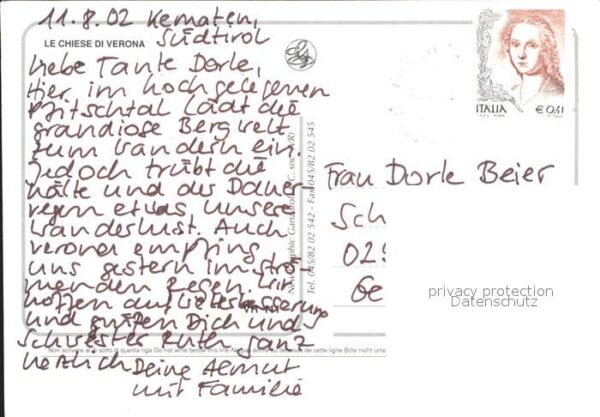 11.8.02 Kematen,
Südtirol
LE CHIESE DI VERONA
Liebe Tante Dorle,
Hier im hochgelegenen
Pfitschtal lädt die
grandiose Bergwelt
zum Wandern ein.
Jedoch trübt die
Kälte und der Dauer-
regen etwas unsere
Wanderlust. Auch
Verona empfing
uns gestern im strö-
menden Regen. Wir
hoffen auf Wetterbesserung
und grüßen Dich und
Schwester Ruth ganz
herzlich Deine Almut
mit Familie
Non scrivere al di sotto di questa riga Do not write below this line
Tel. 045/82 02 542 - Fax 045/82 02 545
ITALIA
€ 0,41
Frau Dorle Beier
Sch
029
Ge
privacy protection
Datenschutz